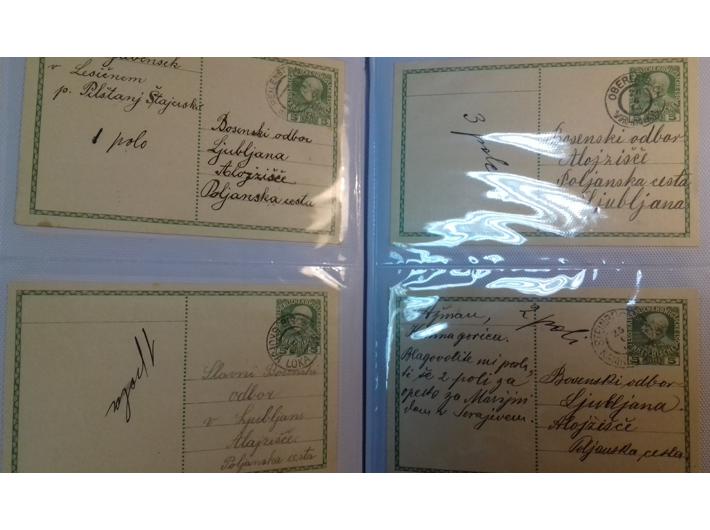 v Lesičnem
p. Pilštanj Štajerska
1 polo
Bosenski odbor
Ljubljana
Alojzišče
Poljanska cesta
3 pole
OBERE
Bosenski odbor
Alojzišče
Poljanska cesta
Ljubljana
LOKA
Slavni Bosenski
odbor
v Ljubljani
Alojzišče
Poljanska cesta
2 poli
Blagovolite mi posla-
ti še 2 poli za
opeko za Marijin
dom v Serajevem.
Bosenski odbor
Ljubljana
Alojzišče
Poljanska cesta